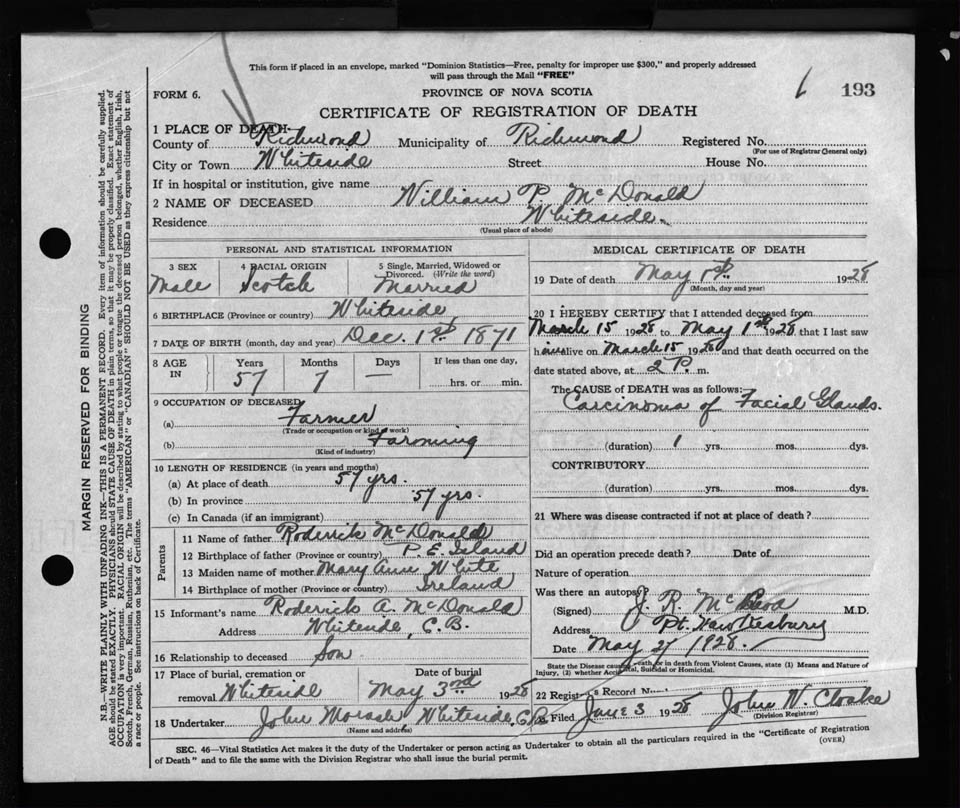 This form if placed in an envelope, marked "Dominion Statistics—Free, penalty for improper use $300," and properly addressed
will pass through the Mail "FREE"
FORM 6.
PROVINCE OF NOVA SCOTIA
193
CERTIFICATE OF REGISTRATION OF DEATH
1 PLACE OF DEATH
County of Richmond Municipality of Richmond Registered No.
(For use of Registrar General only)
City or Town Whiteside Street House No.
If in hospital or institution, give name
2 NAME OF DECEASED William P. McDonald
Residence Whiteside
(Usual place of abode)
PERSONAL AND STATISTICAL INFORMATION
3 SEX
Male
4 RACIAL ORIGIN
Scotch
5 Single, Married, Widowed or
Divorced. (Write the word)
Married
6 BIRTHPLACE (Province or country) Whiteside
7 DATE OF BIRTH (month, day and year) Dec. 1st 1871
8 AGE IN
Years 57
Months 7
Days —
If less than one day,
hrs. or min.
9 OCCUPATION OF DECEASED
(a) Farmer
(Trade or occupation or kind of work)
(b) Farming
(Kind of industry)
10 LENGTH OF RESIDENCE (in years and months)
(a) At place of death 57 yrs.
(b) In province 57 yrs.
(c) In Canada (if an immigrant)
Parents
11 Name of father Roderick McDonald
12 Birthplace of father (Province or country) P. E. Island
13 Maiden name of mother Mary Ann White
14 Birthplace of mother (Province or country) Ireland
15 Informant's name Roderick A. McDonald
Address Whiteside, C.B.
16 Relationship to deceased Son
17 Place of burial, cremation or
removal Whiteside
Date of burial
May 3rd 1928
18 Undertaker John Whiteside C.B.
(Name and address)
MEDICAL CERTIFICATE OF DEATH
19 Date of death May 1st 1928
(Month, day and year)
20 I HEREBY CERTIFY that I attended deceased from
March 15 1928 to May 1st 1928 that I last saw
him alive on March 15 1928 and that death occurred on the
date stated above, at 2 P. m.
The CAUSE OF DEATH was as follows:
Carcinoma of Facial Glands.
(duration) 1 yrs. mos. dys.
CONTRIBUTORY
(duration) yrs. mos. dys.
21 Where was disease contracted if not at place of death?
Did an operation precede death? Date of
Nature of operation
Was there an autopsy?
(Signed) J. R. M.D.
Address Pt. Hawkesbury
Date May 1928
State the Disease causing Death or in death from Violent Causes, state (1) Means and Nature of
Injury, (2) whether Accidental, Suicidal or Homicidal.
22 Registrar's Record Number
Filed June 3 1928 John N. Cloake
(Division Registrar)
SEC. 46—Vital Statistics Act makes it the duty of the Undertaker or person acting as Undertaker to obtain all the particulars required in the "Certificate of Registration
of Death" and to file the same with the Division Registrar who shall issue the burial permit.
(OVER)
MARGIN RESERVED FOR BINDING
N.B.—WRITE PLAINLY, WITH UNFADING INK—THIS IS A PERMANENT RECORD. Every item of information should be carefully supplied.
AGE should be stated EXACTLY. PHYSICIANS should STATE CAUSE OF DEATH in plain terms, so that it may be properly classified. Exact statement of
OCCUPATION is very important. RACIAL ORIGIN will be described by stating to what people or tongue the deceased person belonged, whether English, Irish,
Scotch, French, German, Russian, Ruthenian, etc. The terms "AMERICAN" or "CANADIAN" SHOULD NOT BE USED as they express citizenship but not
a race or people. See instructions on back of Certificate.